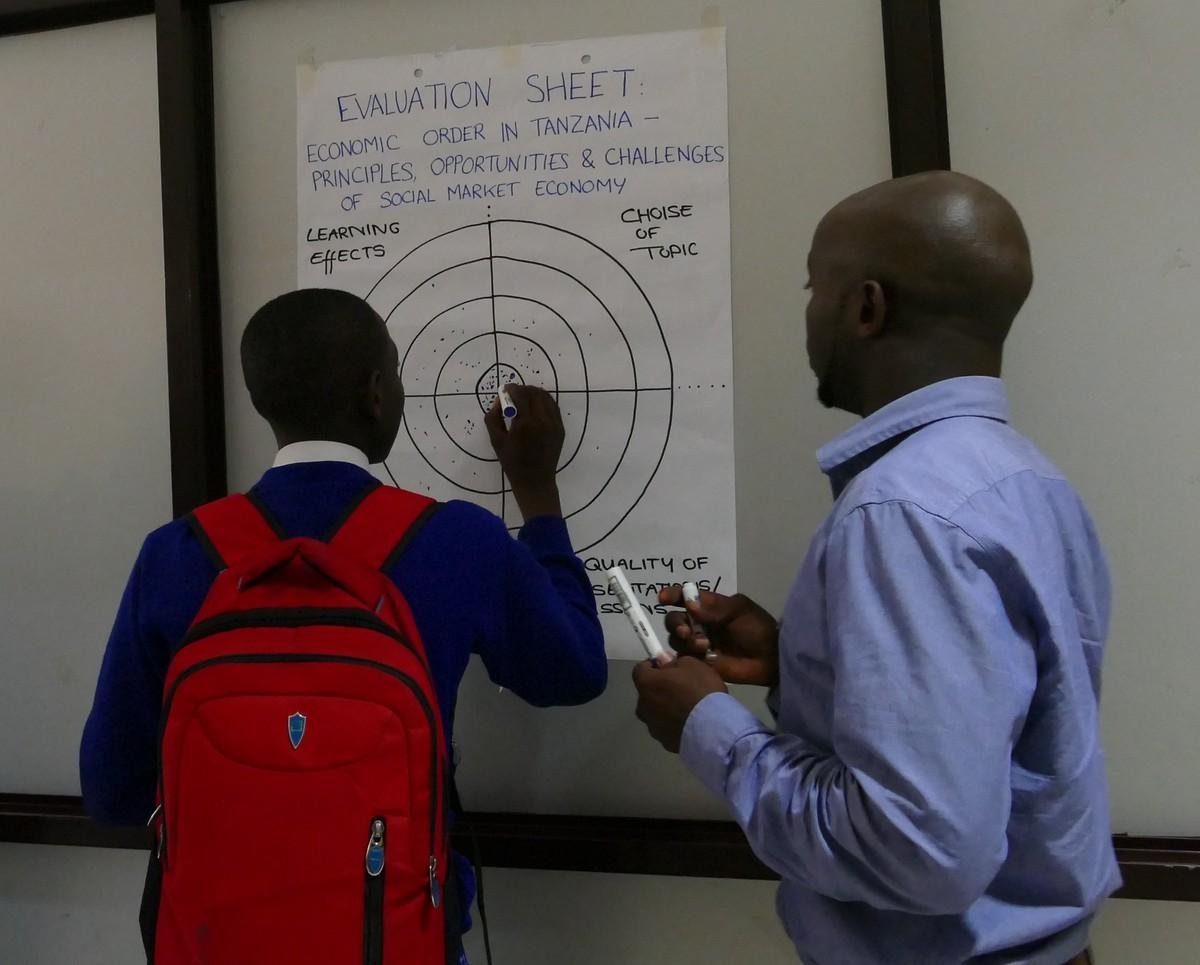 EVALUATION SHEET:
ECONOMIC ORDER IN TANZANIA –
PRINCIPLES, OPPORTUNITIES & CHALLENGES
OF SOCIAL MARKET ECONOMY
LEARNING
EffECTS
CHOISE
OF
TOPIC
QUALITY OF